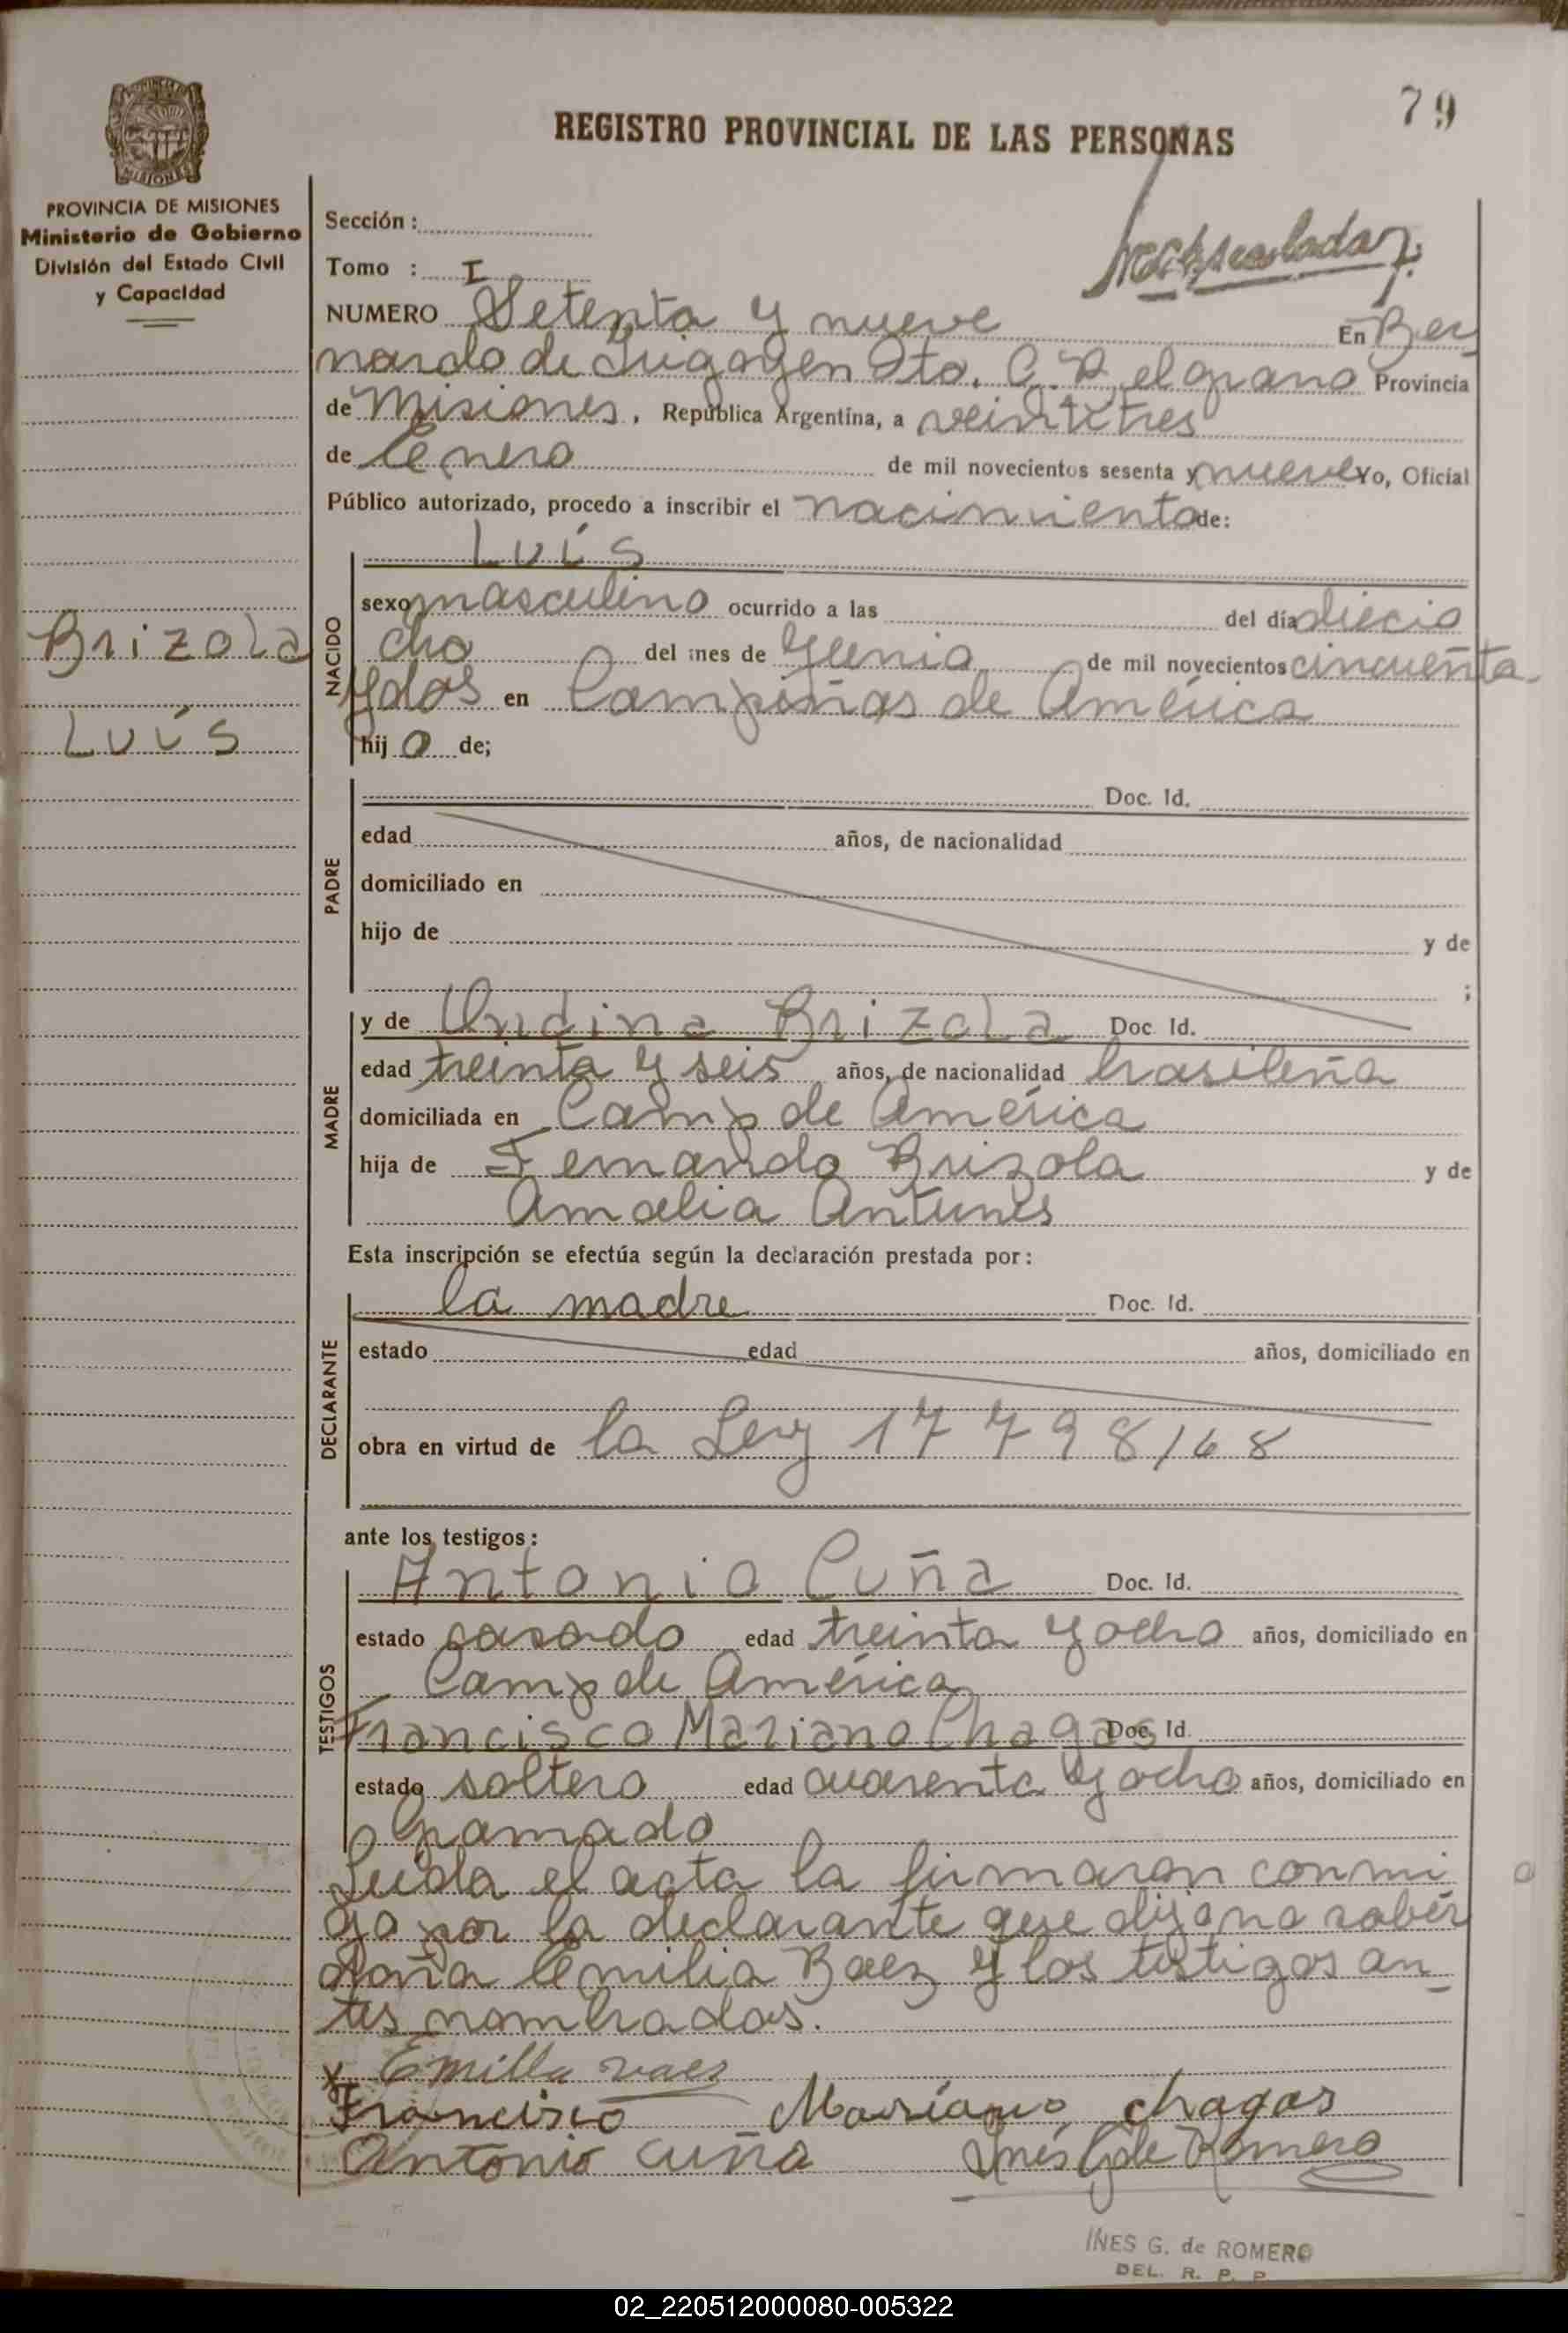 79
REGISTRO PROVINCIAL DE LAS PERSONAS
MISIONES
PROVINCIA DE MISIONES
Ministerio de Gobierno
División del Estado Civil
y Capacidad
Sección :
Tomo : I
NUMERO Setenta y nueve En Ber
nardo de Irigoyen Dto. G. B elgrano Provincia
de Misiones, República Argentina, a veintitres
de Enero de mil novecientos sesenta y nueve Yo, Oficial
Público autorizado, procedo a inscribir el nacimiento de:
Brizola
Luís
NACIDO
Luís
sexo masculino ocurrido a las del día diecio
cho del mes de Junio de mil novecientos cincuenta
y dos en Campiñas de América
hij o de;
PADRE
Doc. Id.
edad años, de nacionalidad
domiciliado en
hijo de y de
;
MADRE
y de Undina Brizola Doc. Id.
edad treinta y seis años, de nacionalidad brasileña
domiciliada en Camp de América
hija de Fernando Brizola y de
Amalia Antunes
Esta inscripción se efectúa según la declaración prestada por:
DECLARANTE
la madre Doc. Id.
estado edad años, domiciliado en
obra en virtud de la Ley 17798/68
ante los testigos:
TESTIGOS
Antonio Cuña Doc. Id.
estado casado edad treinta y ocho años, domiciliado en
Camp de América
Francisco Mariano Chagas Doc. Id.
estado soltero edad cuarenta y ocho años, domiciliado en
Gramado
Leída el acta la firmaron conmi
go por la declarante que dijo no saber
doña Emilia Baez y los testigos an_
tes nombrados.
x Emilla vaes
Francisco Mariano chagas
Antonio cuña Inés G de Romero
INES G. de ROMERO
DEL. R. P. P.
02_220512000080-005322